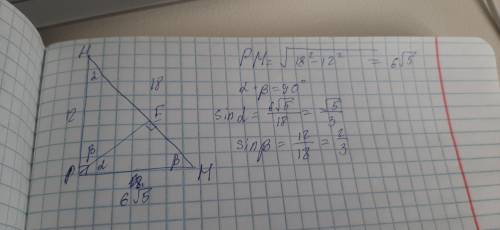 H
α
18
12
F
β
α
β
P
M
6√5
PM = √18² - 12² = 6√5
α + β = 90°
sin α = 6√5/18 = √5/3
sin β = 12/18 = 2/3